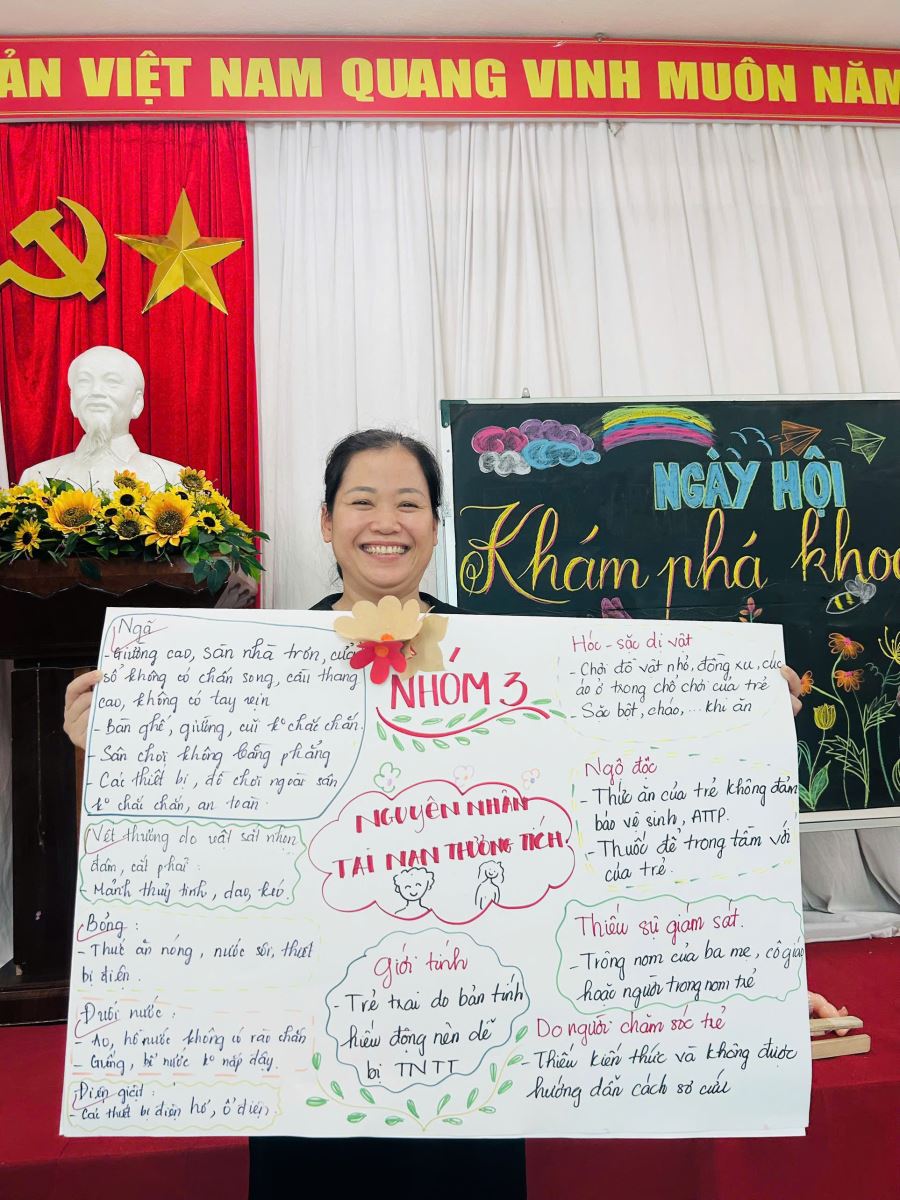 ẢN VIỆT NAM QUANG VINH MUÔN NĂM
NGÀY HỘI
Khám phá khoa
NHÓM 3
NGUYÊN NHÂN
TAI NẠN THƯƠNG TÍCH
Ngã
- Giường cao, sàn nhà trơn, cửa
sổ không có chấn song, cầu thang
cao, không có tay vịn
- Bàn ghế, giường, cũi ko chắc chắn.
- Sân chơi không bằng phẳng
- Các thiết bị, đồ chơi ngoài sân
ko chắc chắn, an toàn.
Vết thương do vật sắt nhọn
đâm, cắt phải:
- Mảnh thuỷ tinh, dao, kéo.
Bỏng:
- Thức ăn nóng, nước sôi, thiết
bị điện.
Đuối nước:
- Ao, hồ nước không có rào chắn
- Giếng, bể nước ko nắp đậy.
Điện giật:
- Các thiết bị điện hở, ổ điện,
giới tính
- Trẻ trai do bản tính
hiếu động nên dễ
bị TNTT
Hóc - sặc dị vật
- Chơi đồ vật nhỏ, đồng xu, cúc
áo ở trong chỗ chơi của trẻ
- Sặc bột, cháo,... khi ăn
Ngộ độc
- Thức ăn của trẻ không đảm
bảo vệ sinh, ATTP.
- Thuốc để trong tầm với
của trẻ.
Thiếu sự giám sát.
- Trông nom của ba mẹ, cô giáo
hoặc người trong nom trẻ
Do người chăm sóc trẻ
- Thiếu kiến thức và không được
hướng dẫn cách sơ cứu